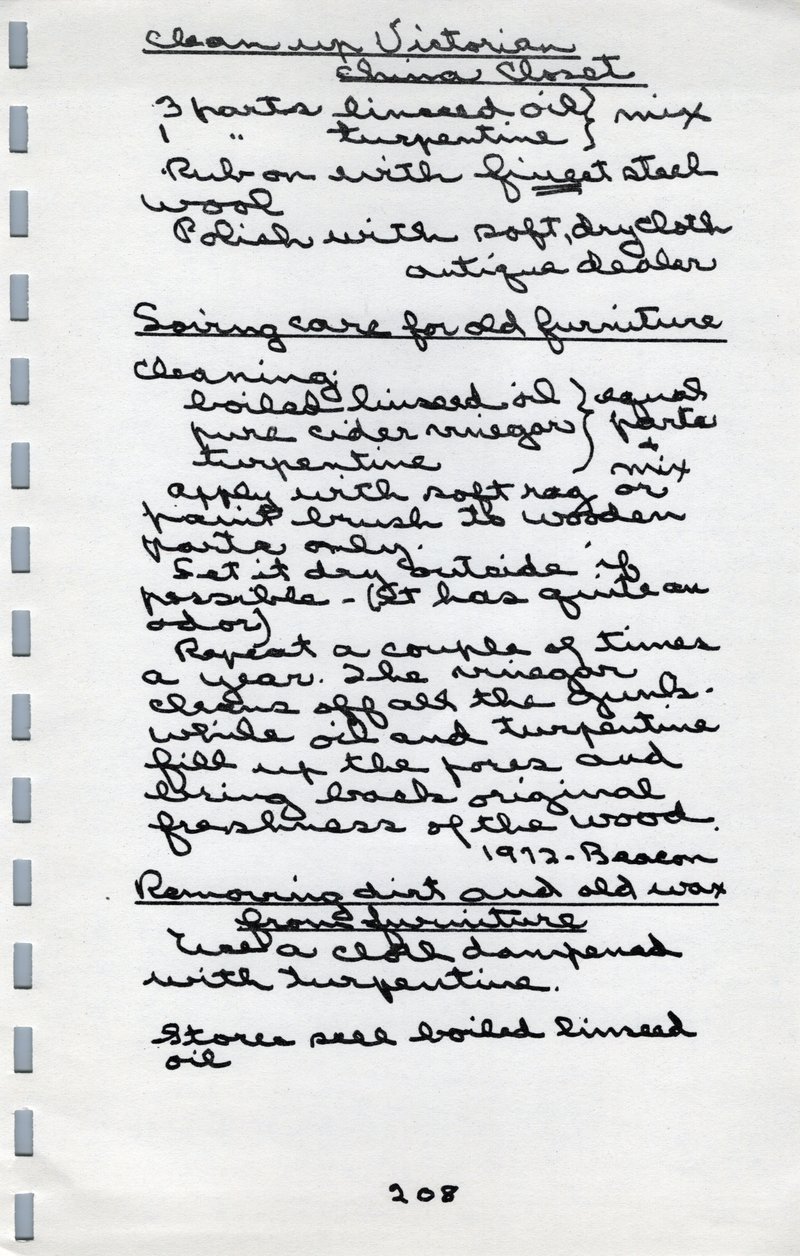 Clean up Victorian
China Closet
3 parts linseed oil } mix
1 " turpentine }
Rub on with finest steel
wool
Polish with soft, dry cloth
antique dealer
care for old furniture
Cleaning:
boiled linseed oil } equal
pure cider vinegar } parts
turpentine } + mix
apply with soft rag or
paint brush to wooden
parts only.
Let it dry outside if
possible - (It has quite an
odor)
Repeat a couple of times
a year. The vinegar
cleans off all the gunk.
while oil and turpentine
fill up the pores and
bring back original
freshness of the wood.
1972 - Beacon
Removing dirt and old wax
from furniture
Use a cloth dampened
with turpentine.
Stores sell boiled linseed
oil
208